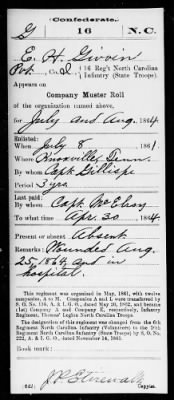 Confederate.
G 16 N.C.
E. H. Givin
Pvt., Co. D, 16 Reg't North Carolina
Infantry (State Troops).
Appears on
Company Muster Roll
of the organization named above,
for July and Aug., 1864.
Enlisted:
When July 8, 1861.
Where Knoxville Tenn.
By whom Capt Gillispe
Period 3 yrs
Last paid:
By whom Capt. McElroy
To what time Apr. 30, 1864.
Present or absent Absent
Remarks: Wounded Aug.
25, 1864, and in
hospital.
This regiment was organized in May, 1861, with twelve
companies, A to M. Companies A and L were transferred by
Infantry, Thomas' Legion North Carolina Troops.
The designation of this regiment was changed from the 6th
Regiment North Carolina Infantry (Volunteers) to the 16th
Regiment North Carolina Infantry (State Troops) by S. O. No.
222, A. & I. G. O., dated November 14, 1861.
Book mark:
(642) Copyist.